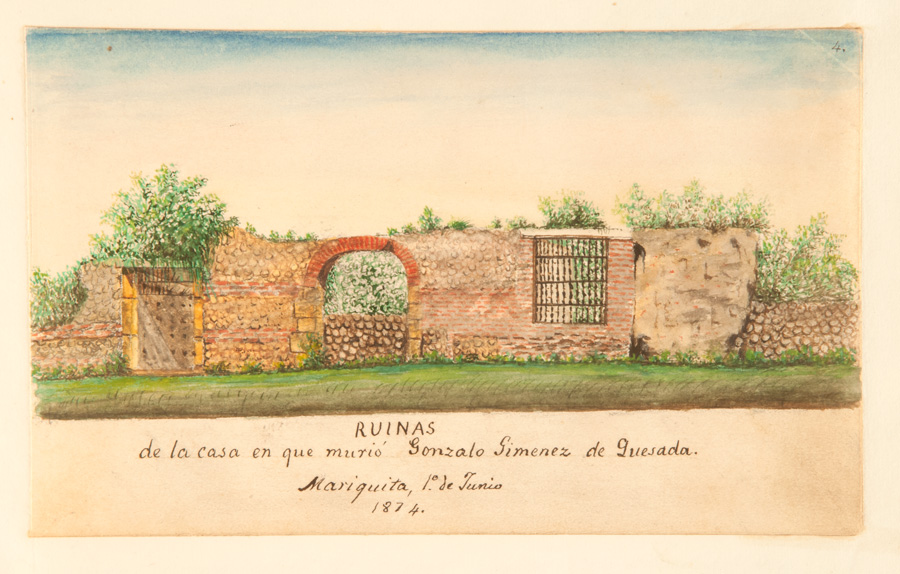 4.
RUINAS
de la casa en que murió Gonzalo Simenez de Quesada.
Mariquita, 1º de Junio
1874.